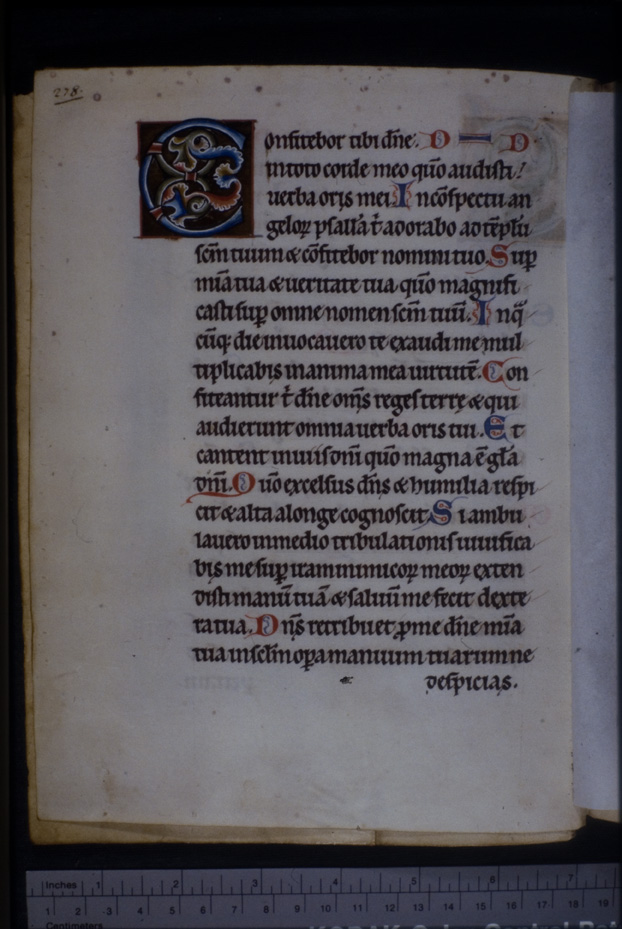 278.
Confitebor tibi dñe. D — D
in toto corde meo qũo audisti!
uerba oris mei. In cõspectu an
geloꝝ psallã t̃ adorabo ad tẽplũ
sc̃m tuum & cõfitebor nomini tuo. Suꝑ
mĩa tua & ueritate tua qũo magnifi
casti suꝑ omne nomen sc̃m tuũ. In q̃
cũq; die inuocauero te exaudi me mul
tiplicabis in anima mea uirtutẽ. Con
fiteantur t̃ dñe om̃s reges terrę & qui
audierunt omnia uerba oris tui. Et
cantent in uiis dñi qũo magna ẽ gl̃a
dñi. Qũo excelsus dñs & humilia respi
cit & alta a longe cognoscit Si ambu
lauero in medio tribulationis uiuifica
bis me suꝑ iram inimicoꝝ meoꝝ exten
disti manũ tuã & saluũ me fecit dexte
ra tua. Dñs retribuet ꝓ me dñe mĩa
tua in sc̃lm oꝑa manuum tuarum ne
despicias.
Inches 1 2 3 4 5 6 7
1 2 3 4 5 6 7 8 9 10 11 12 13 14 15 16 17 18 19
Centimeters